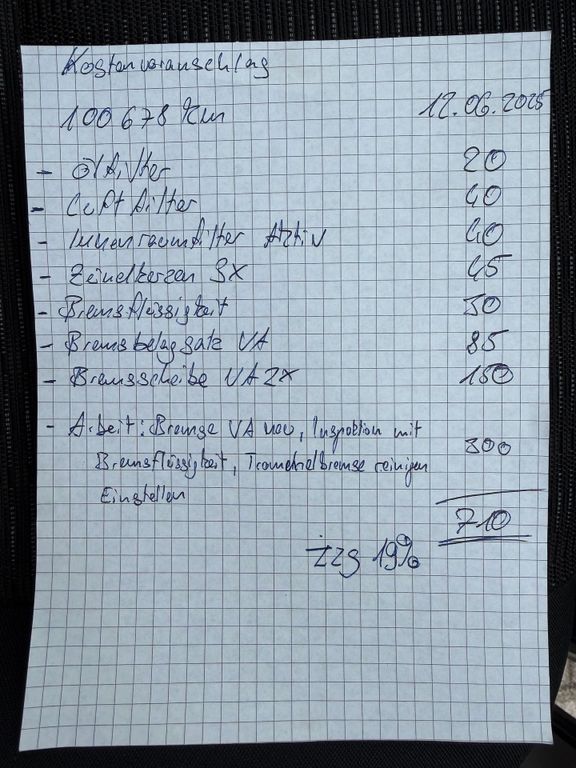 Kostenvoranschlag
100 678 Km 12.06.2025
- Ölfilter 20
- Luftfilter 40
- Innenraumfilter Aktiv 40
- Zündkerzen 3x 45
- Bremsflüssigkeit 30
- Bremsbelagsatz VA 85
- Bremsscheibe VA 2x 150
- Arbeit: Bremse VA neu, Inspektion mit 300
Bremsflüssigkeit, Trommelbremse reinigen
Einstellen
710
zzg 19%